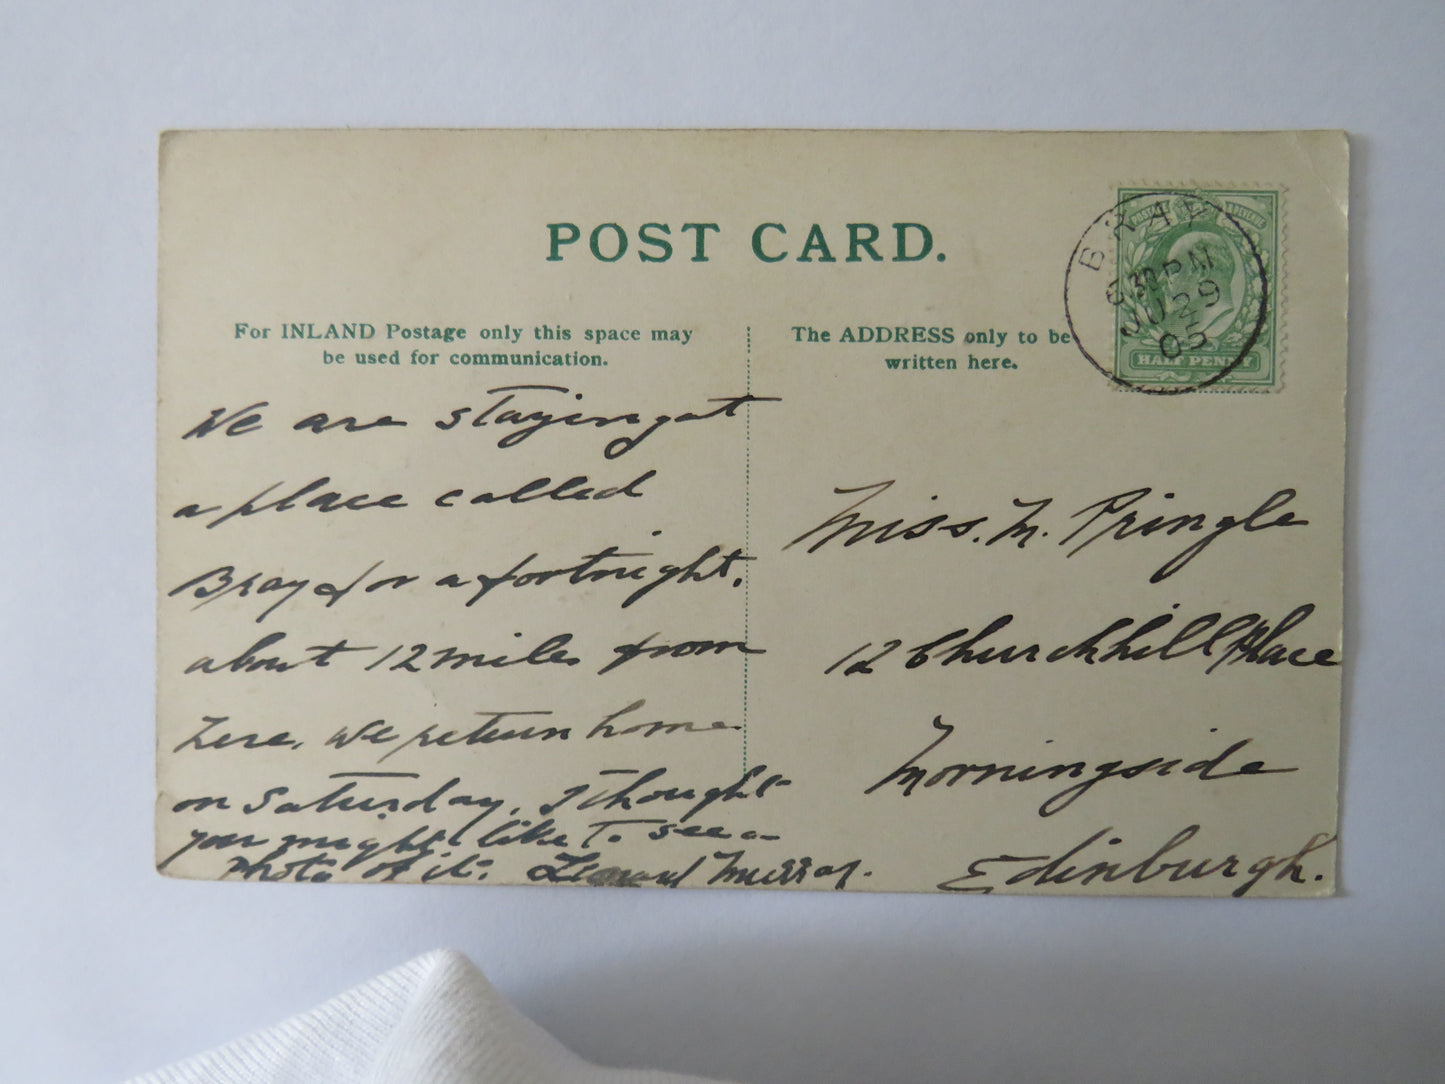 POST CARD.
For INLAND Postage only this space may
be used for communication.
The ADDRESS only to be
written here.
BRAY
6 30 PM
JU 29
05
POSTAGE REVENUE
HALF PENNY
We are staying at
a place called
Bray for a fortnight.
about 12 miles from
here. We return home
on Saturday. I thought
you might like to see a
photo of it. Murray.
Miss. M. Pringle
12 Churchhill Place
Morningside
Edinburgh.